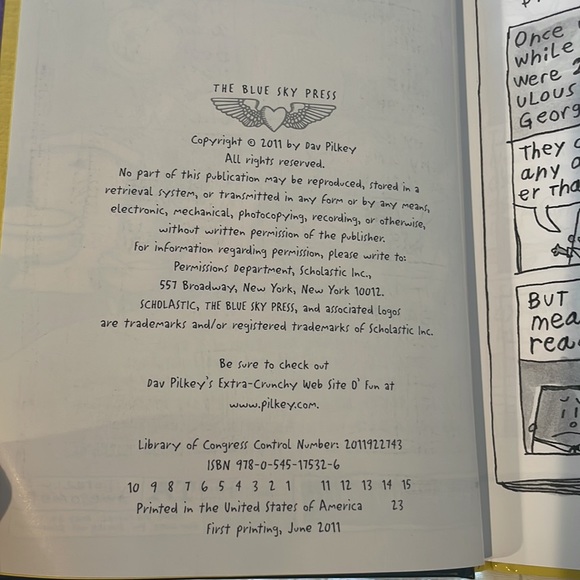 THE BLUE SKY PRESS
Copyright © 2011 by Dav Pilkey
All rights reserved.
No part of this publication may be reproduced, stored in a
retrieval system, or transmitted in any form or by any means,
electronic, mechanical, photocopying, recording, or otherwise,
without written permission of the publisher.
For information regarding permission, please write to:
Permissions Department, Scholastic Inc.,
557 Broadway, New York, New York 10012.
SCHOLASTIC, THE BLUE SKY PRESS, and associated logos
are trademarks and/or registered trademarks of Scholastic Inc.
Be sure to check out
Dav Pilkey's Extra-Crunchy Web Site O' Fun at
www.pilkey.com.
Library of Congress Control Number: 2011922743
ISBN 978-0-545-17532-6
10 9 8 7 6 5 4 3 2 1 11 12 13 14 15
Printed in the United States of America 23
First printing, June 2011
Once
while
were
ULOUS
Georg
They
any
er Tha
BUT
mea
rea